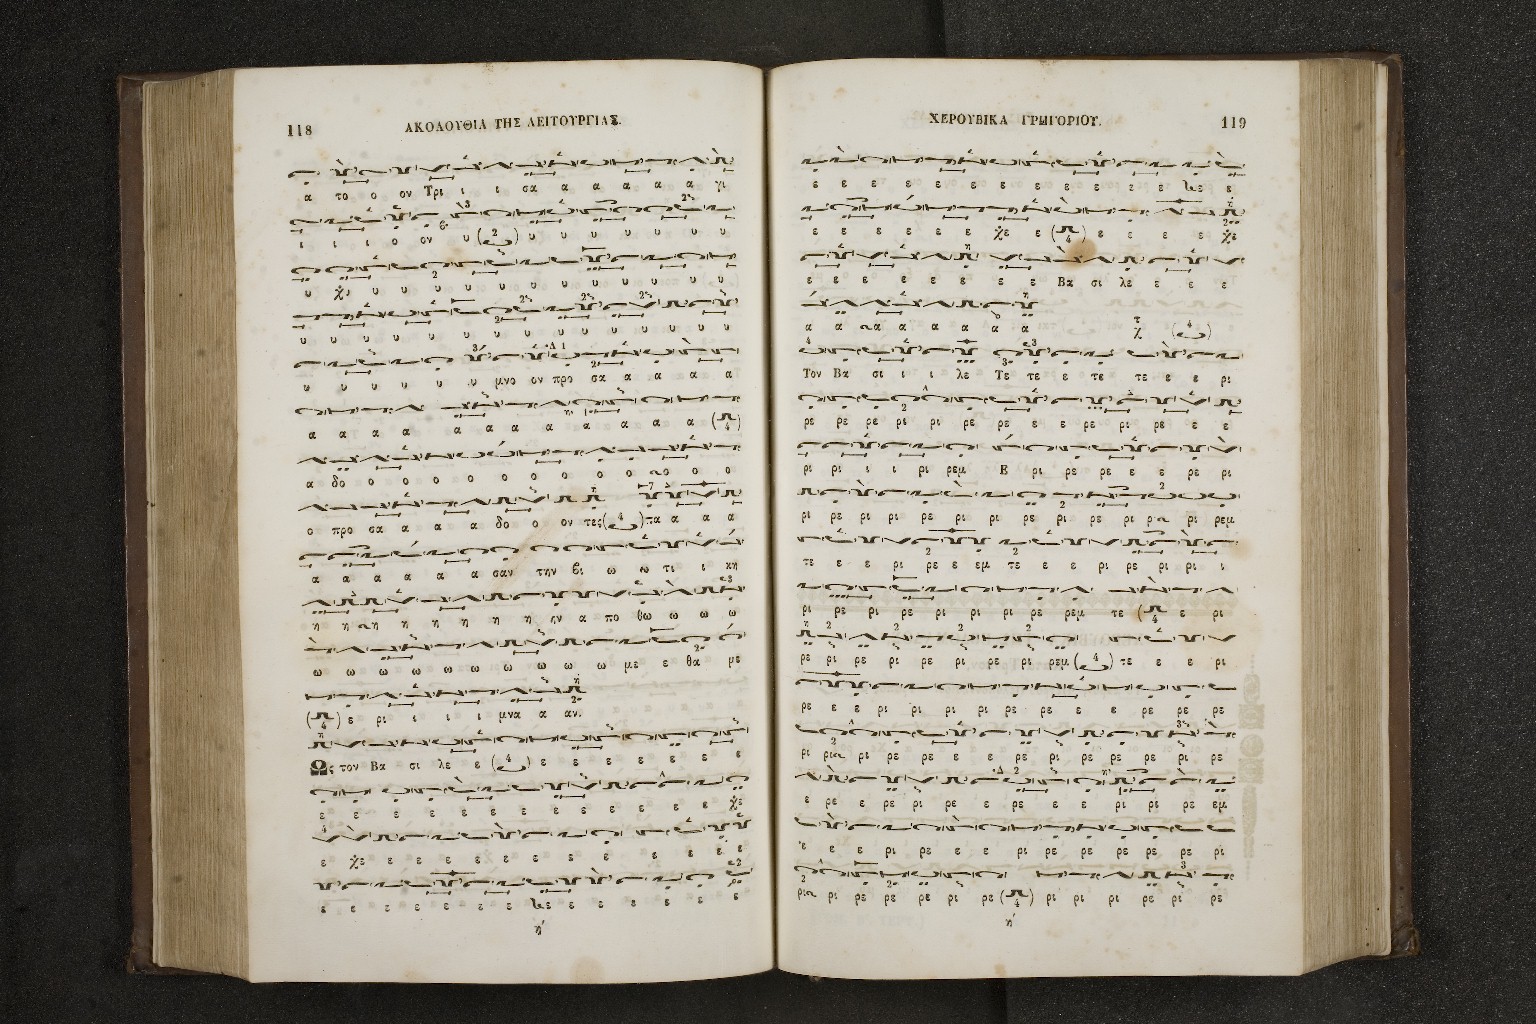 118
ΑΚΟΛΟΥΘΙΑ ΤΗΣ ΛΕΙΤΟΥΡΓΙΑΣ.
α το ο ον Τρι ι ι σα α α α α α γι
ι ι ι ο ον υ υ υ υ υ υ υ υ
υ χυ υ υ υ υ υ υ υ υ υ υ υ
υ υ υ υ υ υ υ υ υ υ υ υ υ
υ υ υ υ υ υ μνο ον προ σα α α α α
α α α α α α α α α α α α
α δο ο ο ο ο ο ο ο ο ο ο ο
ο προ σα α α α δο ο ον τες πα α α α
α α α α α α σαν την βι ω ω τι ι κη
η η η η η η η η ην α πο βω ω ω ω
ω ω ω ω ω ω ω ω ω ω με ε θα με
ε ρι ι ι ι μνα α αν.
Ως τον Βα σι λε ε ε ε ε ε ε ε ε
ε ε ε ε ε ε ε ε ε ε ε ε ε χε
ε χε ε ε ε ε ε ε ε ε ε ε ε ε
ε ε ε ε ε ε ε χε ε ε ε ε ε ε
η'
ΧΕΡΟΥΒΙΚΑ ΓΡΗΓΟΡΙΟΥ.
119
ε ε ε ε ε ε ε ε ε ε ε ε χε ε
ε ε ε ε ε ε χε ε ε ε ε ε χε
ε ε ε ε ε ε ε ε Βα σι λε ε ε ε
α α α α α α α α
Τον Βα σι ι ι λε Τε τε ε τε τε ε ε ρι
ρε ρε ρε ρι ρι ρε ρε ε ε ρε ρι ρε ε ε
ρι ρι ι ι ρι ρεμ Ε ρι ρε ρε ε ε ρε ρι
ρι ρε ρι ρι ρε ρι ρι ρε ρι ρε ρι ρ ρι ρεμ
τε ε ε ρι ρε ε εμ τε ε ε ρι ρε ρι ρι ι
ρι ρε ρι ρε ρι ρι ρι ρε ρεμ τε ε ρι
ρε ρι ρε ρι ρε ρι ρε ρι ρεμ τε ε ε ρι
ρε ε ε ρι ρι ρι ρι ρε ρε ε ε ρε ρε ρε
ρι ρι ρι ρε ρε ε ε ρε ρι ρε ρε ρι ρε
ε ρε ε ρε ρι ρε ε ρε ε ε ρι ρι ρε εμ
ε ε ε ρι ρι ρε ε ε ρι ρε ρε ρε ρε ρι
ρι ρι ρε ρε ρε ρι ρε ρι ρι ρι ρε ρι ρε
η'